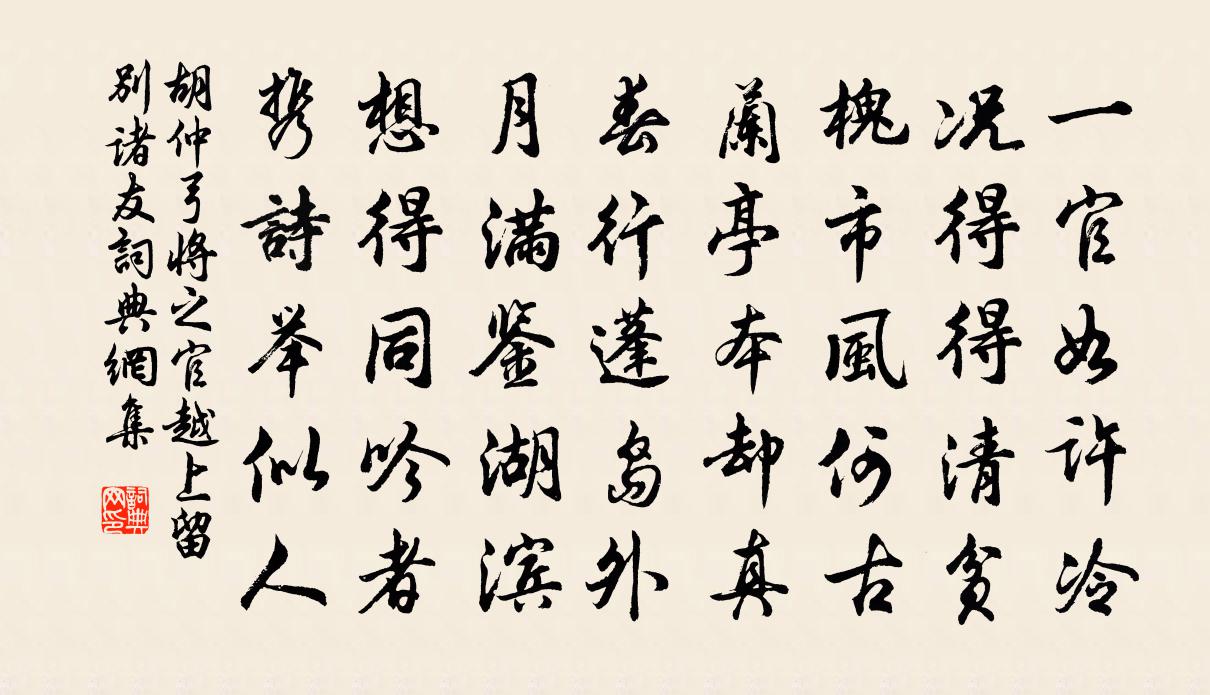 一官如许冷
况得得清貧
槐市風何古
蘭亭本却真
春行蓬岛外
月滿鉴湖滨
想得同吟者
携詩举似人
胡仲弓將之官越上留
别诸友詞典網集
詞典
网印